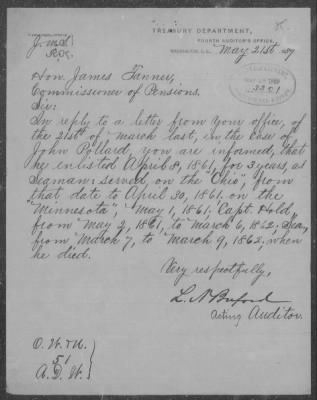 TREASURY DEPARTMENT,
FOURTH AUDITOR'S OFFICE,
WASHINGTON, D.C., May 21st 89
Hon. James Tanner,
Commissioner of Pensions.
Sir:
In reply to a letter from your office, of
the 21st of March last, in the case of
John Pollard, you are informed, that
he enlisted April 8, 1861, for 3 years, as
Seaman: served, on the "Ohio", from
that date to April 30, 1861, on the
"Minnesota", May 1, 1861, Capt. Hold,
from May 2, 1861, to March 6, 1862;
from March 7, to March 9, 1862, when
he died.
Very respectfully,
L. N. Buford
Acting Auditor.
O. W. M.
51
A. D. W.